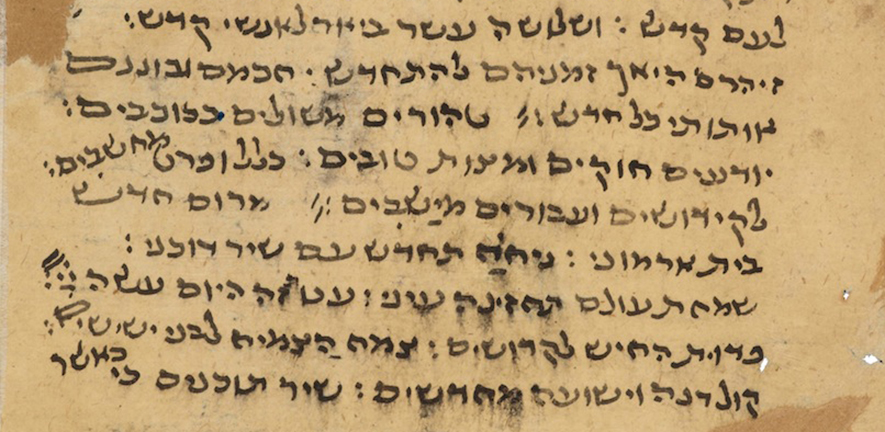 לעם קדש : ושלושה עשר ביאר לאנשי קדש :
זיהרם היאך זמניהם להתחדש · חכמם ובוננם
אותותי כל חדש : טהורים משולים בכוכבים :
יודעים חוקים ומצות טובים : כלל ופרט מחשבים :
לקידושים ועבורים מישבים : מרום חדש
בית ארמוני : ניחה תחדש עם שיר רוכני :
שמחת עולם תחזינה עיני : עט זה היום עשה יי :
פדות החיש לקדושים : צמח הצמיח לבני ישישים :
קול רנה וישועה מחדשים : שיר תוכנים כי כאשר